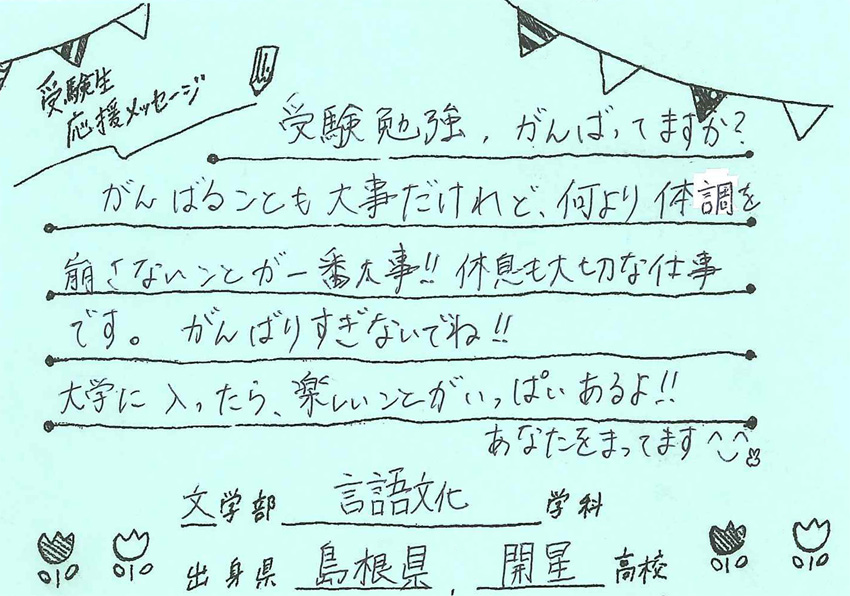 受験生
応援メッセージ
受験勉強，がんばってますか?
がんばることも大事だけれど、何より体調を
崩さないことが一番大事!! 休息も大切な仕事
です。がんばりすぎないでね!!
大学に入ったら、楽しいことがいっぱいあるよ!!
あなたをまってます^^
文学部 言語文化 学科
出身県 島根県 , 開星 高校